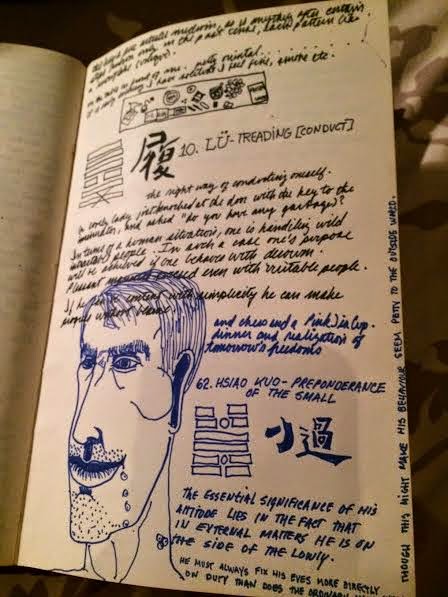 in the past tense, each pattern like
in front of me. petty oriental
I feel fine, smoke etc.
履 10. LÜ- TREADING [CONDUCT]
the right way of conducting oneself.
a lovely lady just knocked at the door with the key to the
and asked "do you have any garbage?"
In terms of a human situation, one is handling wild
intractable people. In such a case one's purpose
will be achieved if one behaves with decorum.
Pleasant manners succeed even with irritable people.
If he is content with simplicity he can make
progress without blame
and chess and a Pink) in Cup.
dinner and realization of
tomorrow's freedoms
62. HSIAO KUO- PREPONDERANCE
OF THE SMALL
小過
THE ESSENTIAL SIGNIFICANCE OF HIS
ATTITUDE LIES IN THE FACT THAT
IN EXTERNAL MATTERS HE IS ON
THE SIDE OF THE LOWLY.
HE MUST ALWAYS FIX HIS EYES MORE DIRECTLY
ON DUTY THAN DOES THE ORDINARY
THOUGH THIS MIGHT MAKE HIS BEHAVIOUR SEEM PETTY TO THE OUTSIDE WORLD.